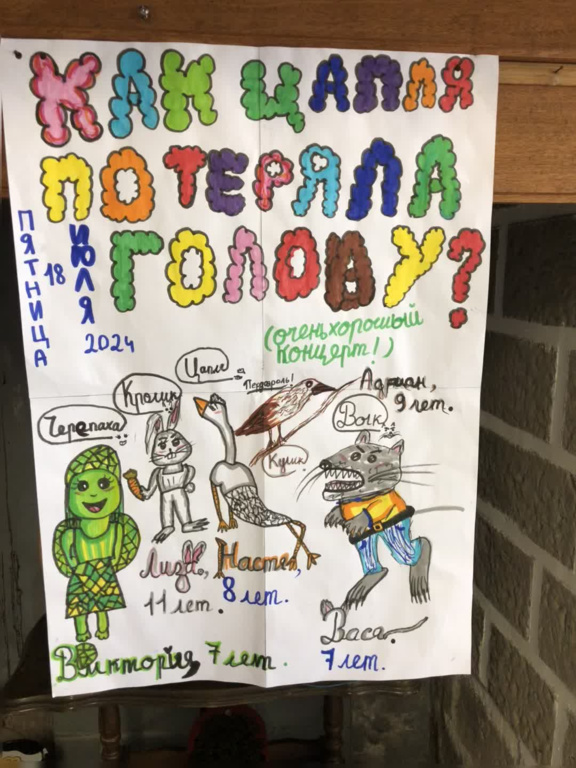 КАК ЦАПЛЯ
ПОТЕРЯЛА
ГОЛОВУ?
ПЯТНИЦА
18
ИЮЛЯ
2024
(очень хороший
концерт!)
Черепаха
Кролик
Цапля
Адриан,
9 лет.
Кулик
Волк
Лиза,
11 лет.
Настя,
8 лет.
Виктория, 7 лет.
Вася
7 лет.